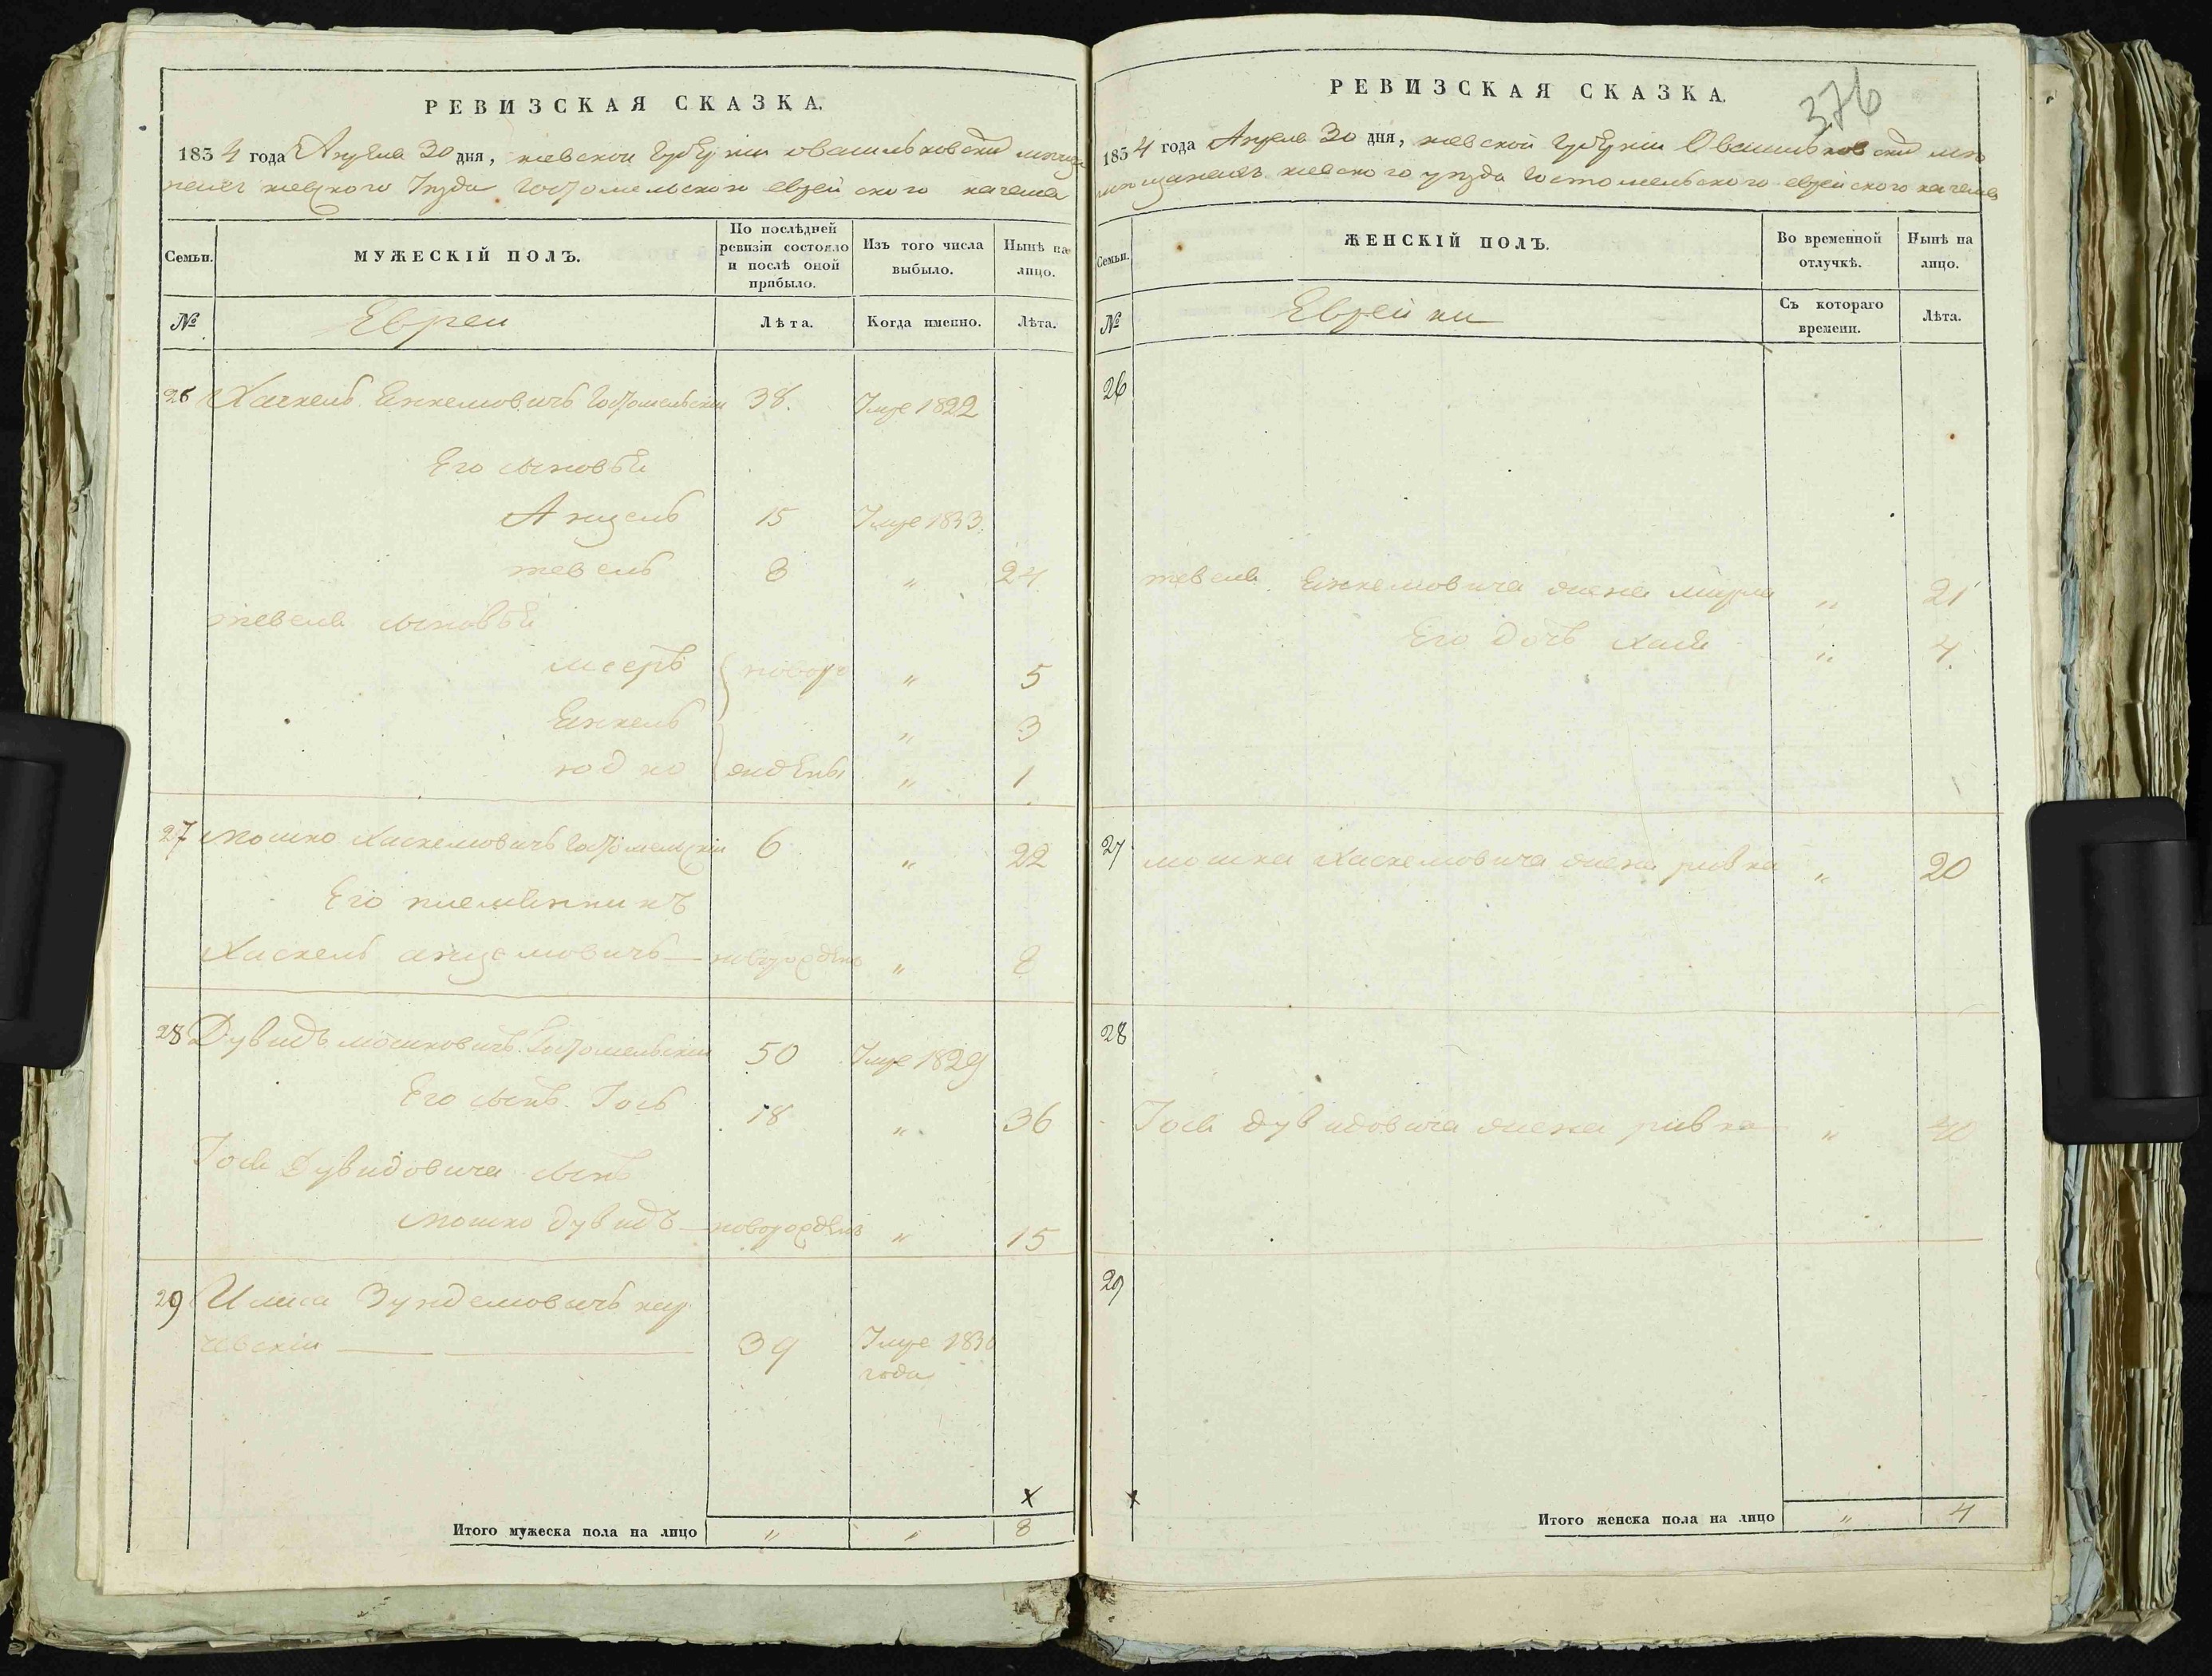 РЕВИЗСКАЯ СКАЗКА.
1834 года Апреля 30 дня, киевской губернии о васильковских мещан
киевского уезда Гостомельского еврейского кагала
Семьи.
МУЖЕСКІЙ ПОЛЪ.
По послѣдней ревизіи состояло и послѣ оной прибыло.
Изъ того числа выбыло.
Нынѣ на лицо.
№
Евреи
Лѣта.
Когда именно.
Лѣта.
26 Хаскель Янкелювичъ Гостомельскій 38. Умре 1822
Его сыновья
Анцель 15 Умре 1833.
тевель 8 " 24
тевеля сыновья
меерь новоро " 5
Янкель " 3
юдко ждены " 1
27 Мошко Хаскелювичъ Гостомельскій 6 " 22
Его племянникъ
Хаскель анцелювичъ — новорожденъ " 8
28 Дувидъ мошковичъ Гостомельскій 50 Умре 1829
Его сынъ Іось 18 " 36
Іося Дувидовича сынъ
мошко дувидъ — новорожденъ " 15
29 Зунделювичъ
чевскій 39 Умре 1830
года
х
Итого мужеска пола на лицо " " 8
РЕВИЗСКАЯ СКАЗКА.
376
1834 года Апреля 30 дня, киевской губернии О васильковских
мещанехъ киевского уезда Гостомельского еврейского кагала
Семьи.
ЖЕНСКІЙ ПОЛЪ.
Во временной отлучкѣ.
Нынѣ на лицо.
№
Еврейки
Съ котораго времени.
Лѣта.
26
тевеля Янкелювича жена мирля " 21
Его дочь хая " 4.
27 мошка Хаскелювича жена ривка " 20
28
Іося дувидовича жена ривка " 40
29
х
Итого женска пола на лицо " 4